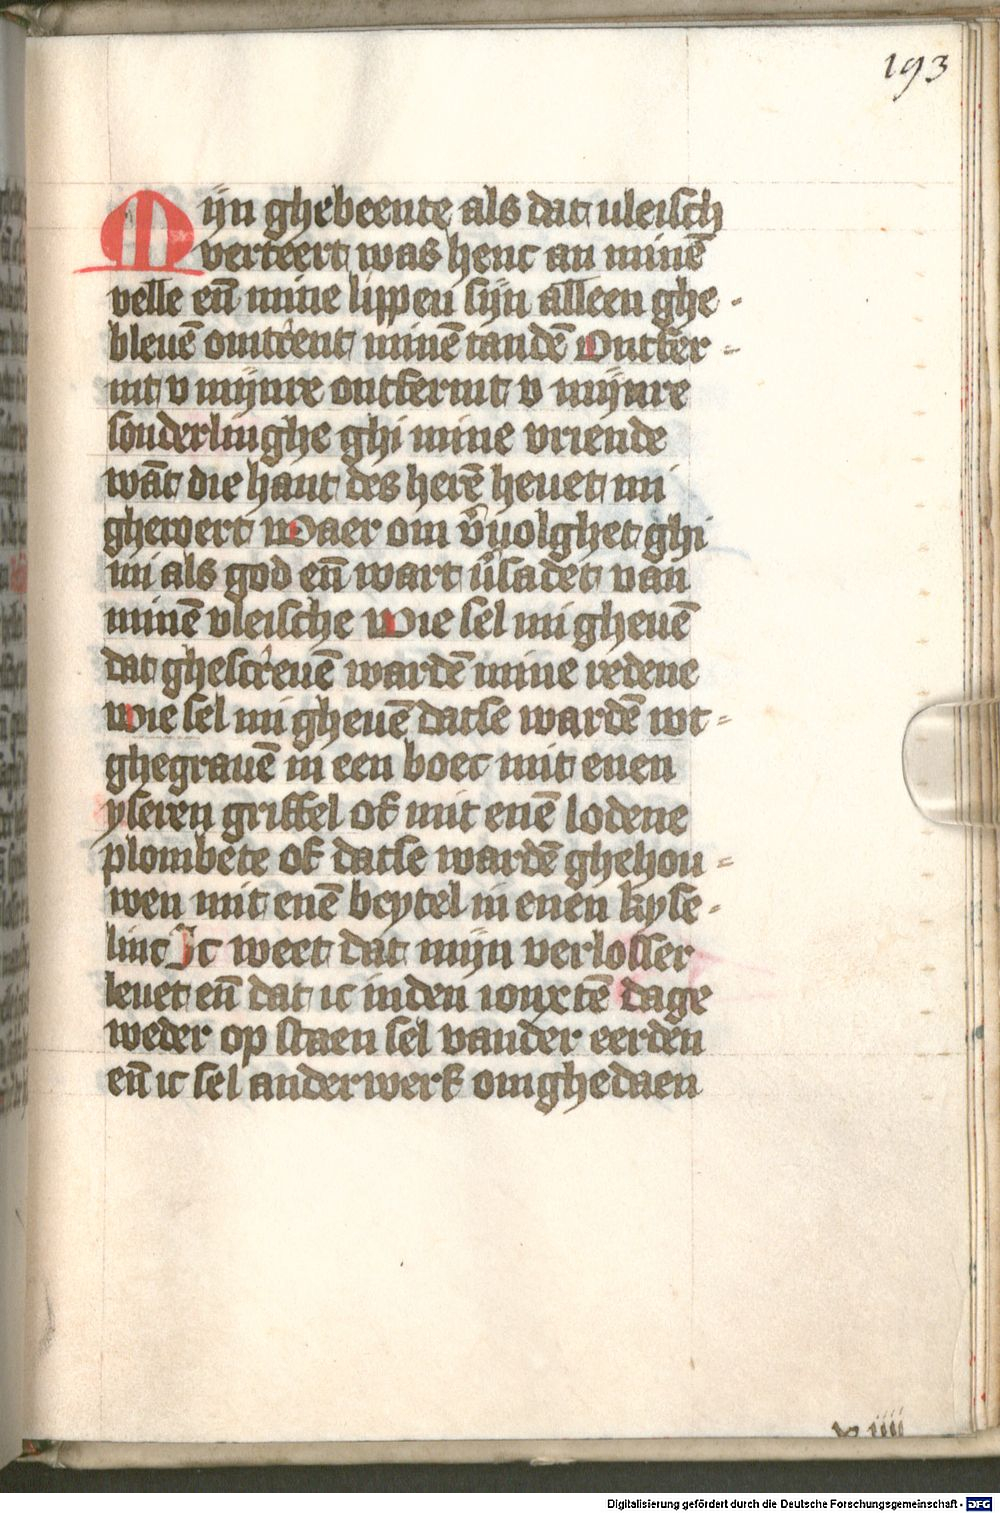 193
Mijn ghebeente als dat uleisch
verteert was henc an minē
velle eñ mine lippen sijn alleen ghe-
bleuē omtrent minē tandē Ontfer-
mt v mijnre ontfermt v mijnre
sonderlinghe ghi mine vriende
wāt die hant des herē heuet mi
ghewert Waer om v̄uolghet ghi
mi als god eñ wart u̅sadet van
minē vleische Wie sel mi gheuē
dat ghescreuē wardē mine redene
Wie sel mi gheuē datse wardē wt=
ghegrauē in een boec mit enen
yseren griffel of mit enē lodene
plombete of datse wardē ghehou=
wen mit enē beytel in enen kyse-
linc Ic weet dat mijn verlosser
leuet eñ dat ic inden ionxtē dage
weder op staen sel vander eerden
eñ ic sel anderwerf omghedaen
Digitalisierung gefördert durch die Deutsche Forschungsgemeinschaft - DFG